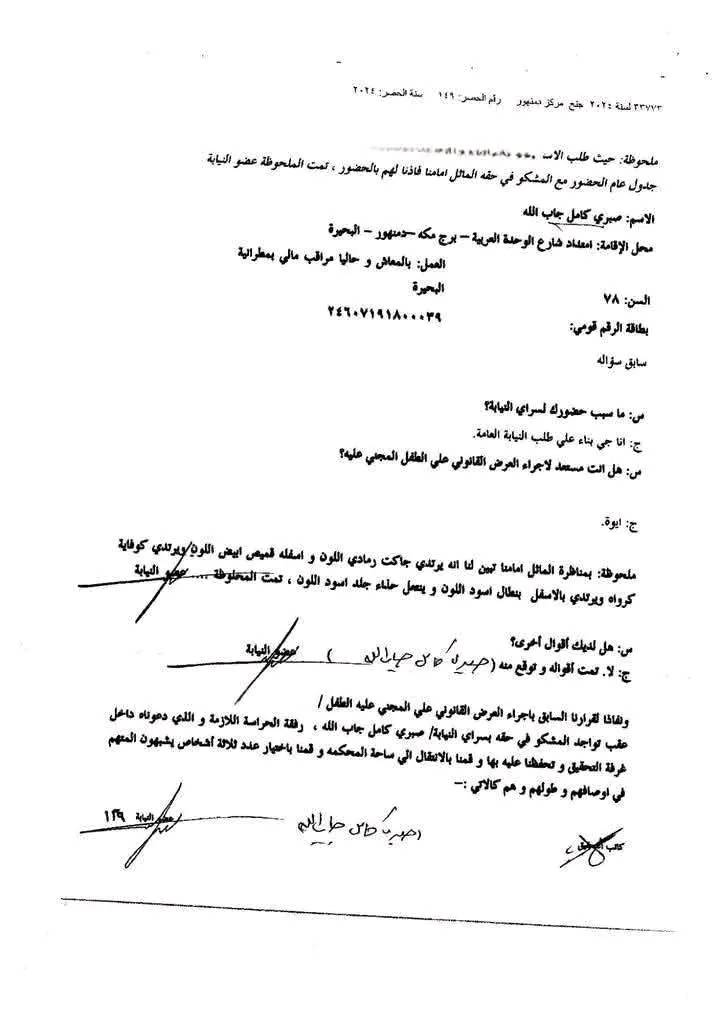 ٣٣٧٧٣ لسنة ٢٠٢٤ جنح مركز دمنهور رقم الحصر: ١٤٩ سنة الحصر: ٢٠٢٤
ملحوظة: حيث طلب الاسـ
جدول عام الحضور مع المشكو في حقه الماثل امامنا فاذنا لهم بالحضور ، تمت الملحوظة عضو النيابة
الاسم: صبري كامل جاب الله
محل الإقامة: امتداد شارع الوحدة العربية – برج مكه –دمنهور – البحيرة
العمل: بالمعاش و حاليا مراقب مالي بمطرانية
البحيرة
السن: ٧٨
بطاقة الرقم قومي: ٢٤٦٠٧١٩١٨٠٠٠٣٩
سابق سؤاله
س: ما سبب حضورك لسراي النيابة؟
ج: انا جي بناء علي طلب النيابة العامة.
س: هل انت مستعد لاجراء العرض القانوني علي الطفل المجني عليه؟
ج: ايوة.
ملحوظة: بمناظرة الماثل امامنا تبين لنا انه يرتدي جاكت رمادي اللون و اسفله قميص ابيض اللون ويرتدي كوفاية
كرواه ويرتدي بالاسفل بنطال اسود اللون و ينتعل حذاء جلد اسود اللون ، تمت المحلوظة ... عضو النيابة
س: هل لديك أقوال أخرى؟
ج: لا. تمت أقواله و توقع منه ( صبري كامل جاب الله ) عضو النيابة
ونفاذا لقرارنا السابق باجراء العرض القانوني علي المجني عليه الطفل /
عقب تواجد المشكو في حقه بسراي النيابة/ صبري كامل جاب الله ، رفقة الحراسة اللازمة و الذي دعوناه داخل
غرفة التحقيق و تحفظنا عليه بها و قمنا بالانتقال الي ساحة المحكمه و قمنا باختيار عدد ثلاثة أشخاص يشبهون المتهم
في اوصافهم و طولهم و هم كالاتي :–
كاتب التحقيق صبري كامل جاب الله عضو النيابة ١٣٩